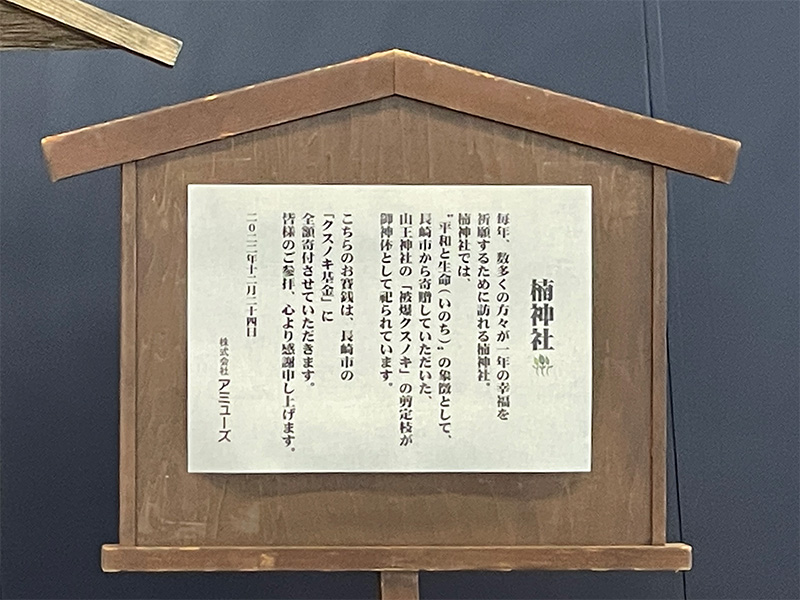 楠神社
毎年、数多くの方々が一年の幸福を
祈願するために訪れる楠神社。
楠神社では、
“平和と生命(いのち)”の象徴として、
長崎市から寄贈していただいた、
山王神社の「被爆クスノキ」の剪定枝が
御神体として祀られています。
こちらのお賽銭は、長崎市の
「クスノキ基金」に
全額寄付させていただきます。
皆様のご参拝、心より感謝申し上げます。
二〇二二年十二月二十四日
株式会社アミューズ